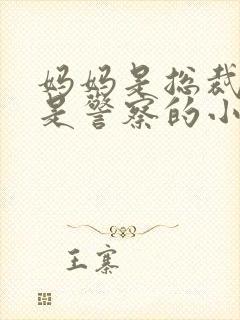 妈妈是总裁
是警察的小
王寨